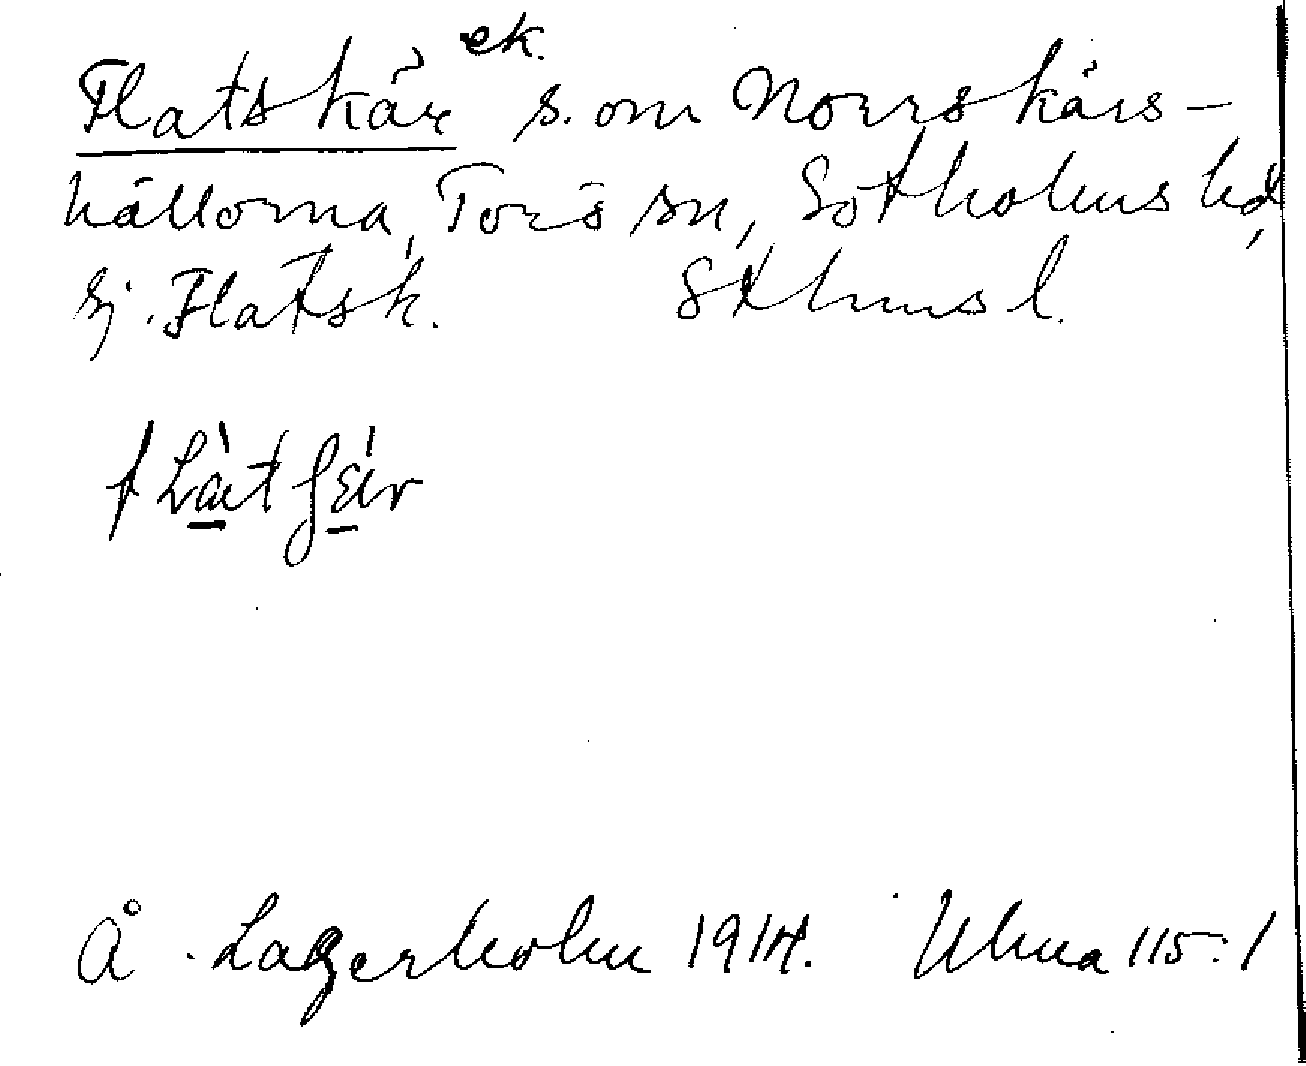 Flatskär ek. s. om Norrskärs-
hällorna, Torö sn, Sotholms hd,
Ej. Flatsk. Sthms l.
Å. Lagerholm 1914. Uluna 115:1